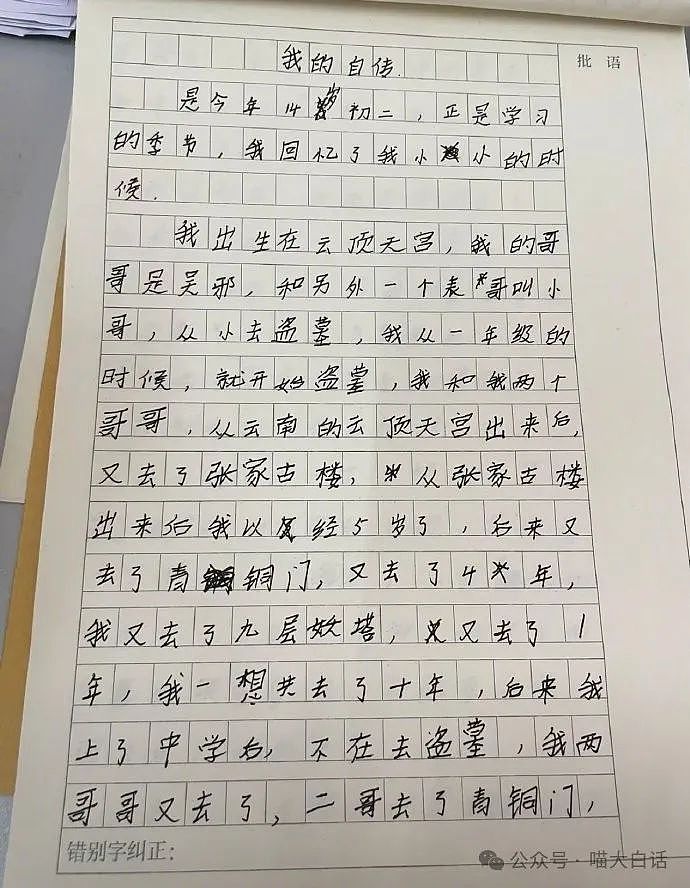 我的自传.
批语
是今年14岁初二，正是学习
的季节，我回忆了我小小的时
候.
我出生在云顶天宫，我的哥
哥是吴邪，和另外一个表哥叫小
哥，从小去盗墓，我从一年级的
时候，就开始盗墓，我和我两个
哥哥，从云南的云顶天宫出来后，
又去了张家古楼，从张家古楼
出来后我以经5岁了，后来又
去了青铜门，又去了4年，
我又去了九层妖塔，又去了1
年，我一想共去了十年，后来我
上了中学后，不在去盗墓，我两
哥哥又去了，二哥去了青铜门，
错别字纠正：
公众号·喵大白话